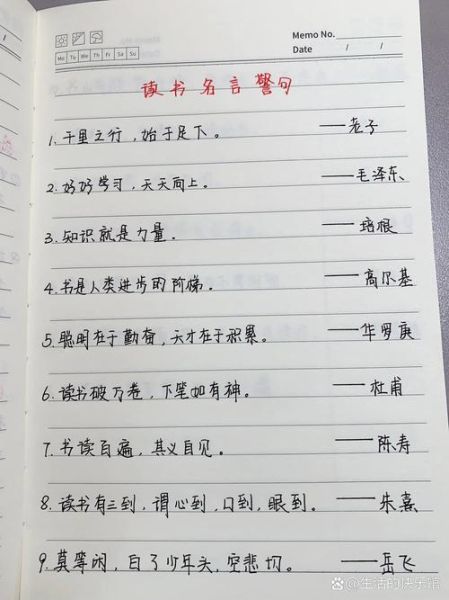 Memo No.
Mo Tu We Th Fr Sa Su
Date / /
读书名言警句
1.千里之行，始于足下。 ——老子
2.好好学习，天天向上。 ——毛泽东
3.知识就是力量。 ——培根
4.书是人类进步的阶梯。 ——高尔基
5.聪明在于勤奋，天才在于积累。 ——华罗庚
6.读书破万卷，下笔如有神。 ——杜甫
7.书读百遍，其义自见。 ——陈寿
8.读书有三到，谓心到，口到，眼到。 ——朱熹
9.莫等闲，白了少年头，空悲切。 ——岳飞
@生活的快乐馆